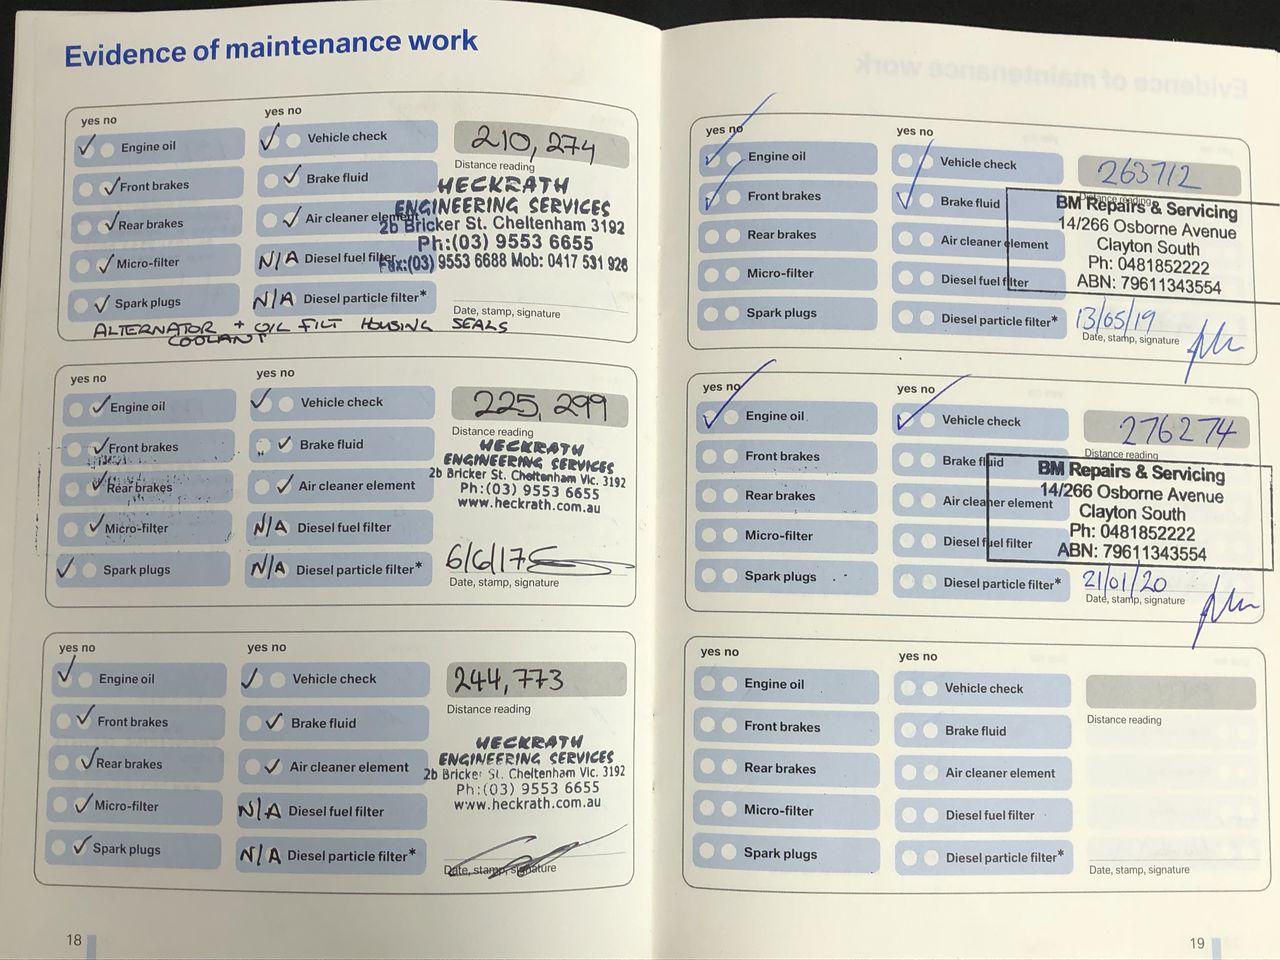 Evidence of maintenance work
yes no
yes no
Engine oil
Vehicle check
210,274
Distance reading
Front brakes
Brake fluid
Rear brakes
Air cleaner element
Micro-filter
N/A Diesel fuel filter
Spark plugs
N/A Diesel particle filter*
HECKRATH
ENGINEERING SERVICES
2b Bricker St. Cheltenham 3192
Ph:(03) 9553 6655
Fax:(03) 9553 6688 Mob: 0417 531 926
Date, stamp, signature
ALTERNATOR + OIL FILT HOUSING SEALS
COOLANT
yes no
yes no
Engine oil
Vehicle check
225,299
Distance reading
Front brakes
Brake fluid
Rear brakes
Air cleaner element
Micro-filter
N/A Diesel fuel filter
Spark plugs
N/A Diesel particle filter*
HECKRATH
ENGINEERING SERVICES
2b Bricker St. Cheltenham Vic. 3192
Ph:(03) 9553 6655
www.heckrath.com.au
6/6/17
Date, stamp, signature
yes no
yes no
Engine oil
Vehicle check
244,773
Distance reading
Front brakes
Brake fluid
Rear brakes
Air cleaner element
Micro-filter
N/A Diesel fuel filter
Spark plugs
N/A Diesel particle filter*
HECKRATH
ENGINEERING SERVICES
2b Bricker St. Cheltenham Vic. 3192
Ph:(03) 9553 6655
www.heckrath.com.au
Date, stamp, signature
18
yes no
yes no
Engine oil
Vehicle check
263712
Distance reading
Front brakes
Brake fluid
Rear brakes
Air cleaner element
Micro-filter
Diesel fuel filter
Spark plugs
Diesel particle filter*
BM Repairs & Servicing
14/266 Osborne Avenue
Clayton South
Ph: 0481852222
ABN: 79611343554
13/05/19
Date, stamp, signature
yes no
yes no
Engine oil
Vehicle check
276274
Distance reading
Front brakes
Brake fluid
Rear brakes
Air cleaner element
Micro-filter
Diesel fuel filter
Spark plugs
Diesel particle filter*
BM Repairs & Servicing
14/266 Osborne Avenue
Clayton South
Ph: 0481852222
ABN: 79611343554
21/01/20
Date, stamp, signature
yes no
yes no
Engine oil
Vehicle check
Distance reading
Front brakes
Brake fluid
Rear brakes
Air cleaner element
Micro-filter
Diesel fuel filter
Spark plugs
Diesel particle filter*
Date, stamp, signature
19